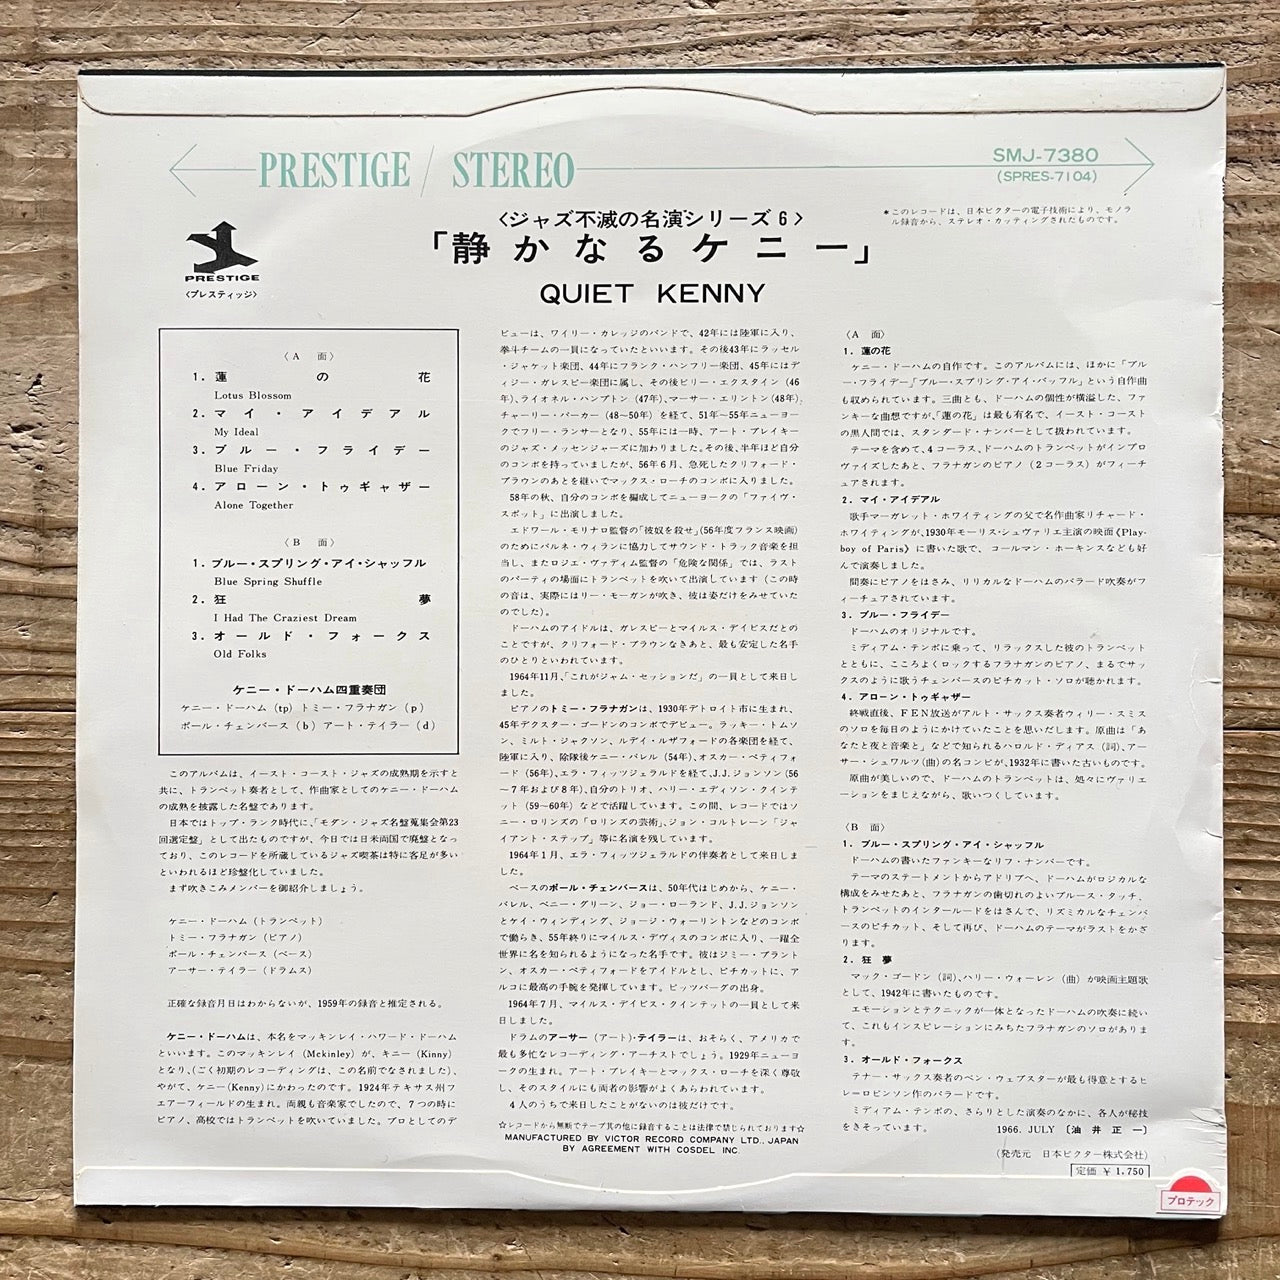 PRESTIGE / STEREO
SMJ-7380
(SPRES-7104)
*このレコードは、日本ビクターの電子技術により、モノラ
ル録音から、ステレオ・カッティングされたものです。
PRESTIGE
〈プレスティッジ〉
〈ジャズ不滅の名演シリーズ6〉
「静かなるケニー」
QUIET KENNY
〈A 面〉
1. 蓮の花
Lotus Blossom
2. マイ・アイデアル
My Ideal
3. ブルー・フライデー
Blue Friday
4. アローン・トゥギャザー
Alone Together
〈B 面〉
1. ブルー・スプリング・アイ・シャッフル
Blue Spring Shuffle
2. 狂夢
I Had The Craziest Dream
3. オールド・フォークス
Old Folks
ケニー・ドーハム四重奏団
ケニー・ドーハム (tp) トミー・フラナガン (p)
ポール・チェンバース (b) アート・テイラー (d)
このアルバムは、イースト・コースト・ジャズの成熟期を示すと
共に、トランペット奏者として、作曲家としてのケニー・ドーハム
の成熟を披露した名盤であります。
日本ではトップ・ランク時代に、「モダン・ジャズ名盤蒐集会第23
回選定盤」として出たものですが、今日では日米両国で廃盤となっ
ており、このレコードを所蔵しているジャズ喫茶は特に客足が多い
といわれるほど珍盤化していました。
まず吹きこみメンバーを御紹介しましょう。
ケニー・ドーハム (トランペット)
トミー・フラナガン (ピアノ)
ポール・チェンバース (ベース)
アーサー・テイラー (ドラムス)
正確な録音月日はわからないが、1959年の録音と推定される。
ケニー・ドーハムは、本名をマッキンレイ・ハワード・ドーハム
といいます。このマッキンレイ (Mckinley) が、キニー (Kinny)
となり、(ごく初期のレコーディングは、この名前でなされました)、
やがて、ケニー(Kenny)にかわったのです。1924年テキサス州フ
エアーフィールドの生まれ。両親も音楽家でしたので、7つの時に
ピアノ、高校ではトランペットを吹いていました。プロとしてのデ
ビューは、ワイリー・カレッジのバンドで、42年には陸軍に入り、
拳斗チームの一員になっていたといいます。その後43年にラッセル
・ジャケット楽団、44年にフランク・ハンフリー楽団、45年にはデ
ィジー・ガレスピー楽団に属し、その後ビリー・エクスタイン (46
年)、ライオネル・ハンプトン (47年)、マーサー・エリントン(48年)、
チャーリー・パーカー (48〜50年) を経て、51年〜55年ニューヨー
クでフリー・ランサーとなり、55年には一時、アート・ブレイキー
のジャズ・メッセンジャーズに加わりました。その後、半年ほど自分
のコンボを持っていましたが、56年6月、急死したクリフォード・
ブラウンのあとを継いでマックス・ローチのコンボに入りました。
58年の秋、自分のコンボを編成してニューヨークの「ファイヴ・
スポット」に出演しました。
エドワール・モリナロ監督の「彼奴を殺せ」(56年度フランス映画)
のためにバルネ・ウィランに協力してサウンド・トラック音楽を担
当し、またロジエ・ヴァディム監督の「危険な関係」では、ラスト
のパーティの場面にトランペットを吹いて出演しています (この時
の音は、実際にはリー・モーガンが吹き、彼は姿だけをみせていた
のでした)。
ドーハムのアイドルは、ガレスピーとマイルス・デイビスだとの
ことですが、クリフォード・ブラウンなきあと、最も安定した名手
のひとりといわれています。
1964年11月、「これがジャム・セッションだ」の一員として来日し
ました。
ピアノのトミー・フラナガンは、1930年デトロイト市に生まれ、
45年デクスター・ゴードンのコンボでデビュー。ラッキー・トムソ
ン、ミルト・ジャクソン、ルデイ・ルザフォードの各楽団を経て、
陸軍に入り、除隊後ケニー・バレル (54年)、オスカー・ペティフォ
ード (56年)、エラ・フィッツジェラルドを経て、J.J.ジョンソン (56
〜7年および8年)、自分のトリオ、ハリー・エディソン・クインテ
ット (59〜60年) などで活躍しています。この間、レコードではソ
ニー・ロリンズの「ロリンズの芸術」、ジョン・コルトレーン「ジャ
イアント・ステップ」等に名演を残しています。
1964年1月、エラ・フィッツジェラルドの伴奏者として来日しま
した。
ベースのポール・チェンバースは、50年代はじめから、ケニー・
バレル、ベニー・グリーン、ジョー・ローランド、J.J.ジョンソン
とケイ・ウィンディング、ジョージ・ウォーリントンなどのコンボ
で働らき、55年終りにマイルス・デヴィスのコンボに入り、一躍全
世界に名を知られるようになった名手です。彼はジミー・ブラント
ン、オスカー・ペティフォードをアイドルとし、ピチカットに、ア
ルコに最高の手腕を発揮しています。ピッツバーグの出身。
1964年7月、マイルス・デイビス・クインテットの一員として来
日しました。
ドラムのアーサー (アート)・テイラーは、おそらく、アメリカで
最も多忙なレコーディング・アーチストでしょう。1929年ニューヨ
ークの生まれ。アート・ブレイキーとマックス・ローチを深く尊敬
し、そのスタイルにも両者の影響がよくあらわれています。
4人のうちで来日したことがないのは彼だけです。
☆レコードから無断でテープ其の他に録音することは法律で禁じられております☆
MANUFACTURED BY VICTOR RECORD COMPANY LTD., JAPAN
BY AGREEMENT WITH COSDEL INC.
〈A 面〉
1. 蓮の花
ケニー・ドーハムの自作です。このアルバムには、ほかに「ブル
ー・フライデー」「ブルー・スプリング・アイ・バッフル」という自作曲
も収められています。三曲とも、ドーハムの個性が横溢した、ファ
ンキーな曲想ですが、「蓮の花」は最も有名で、イースト・コースト
の黒人間では、スタンダード・ナンバーとして扱われています。
テーマを含めて、4コーラス、ドーハムのトランペットがインプロ
ヴァイズしたあと、フラナガンのピアノ (2コーラス) がフィーチ
ュアされます。
2. マイ・アイデアル
歌手マーガレット・ホワイティングの父で名作曲家リチャード・
ホワイティングが、1930年モーリス・シュヴァリエ主演の映画《Play-
boy of Paris》に書いた歌で、コールマン・ホーキンスなども好
んで演奏しました。
間奏にピアノをはさみ、リリカルなドーハムのバラード吹奏がフ
ィーチュアされています。
3. ブルー・フライデー
ドーハムのオリジナルです。
ミディアム・テンポに乗って、リラックスした彼のトランペット
とともに、こころよくロックするフラナガンのピアノ、まるでサッ
クスのように歌うチェンバースのピチカット・ソロが聴かれます。
4. アローン・トゥギャザー
終戦直後、FEN放送がアルト・サックス奏者ウィリー・スミス
のソロを毎日のようにかけていたことを思いだします。原曲は「あ
なたと夜と音楽と」などで知られるハロルド・ディアス (詞)、アー
サー・シュワルツ (曲) の名コンビが、1932年に書いた古いものです。
原曲が美しいので、ドーハムのトランペットは、処々にヴァリエ
ーションをまじえながら、歌いつくしています。
〈B 面〉
1. ブルー・スプリング・アイ・シャッフル
ドーハムの書いたファンキーなリフ・ナンバーです。
テーマのステートメントからアドリブへ、ドーハムがロジカルな
構成をみせたあと、フラナガンの歯切れのよいブルース・タッチ、
トランペットのインタールードをはさんで、リズミカルなチェンバ
ースのピチカット、そして再び、ドーハムのテーマがラストをかざ
ります。
2. 狂夢
マック・ゴードン (詞)、ハリー・ウォーレン (曲) が映画主題歌
として、1942年に書いたものです。
エモーションとテクニックが一体となったドーハムの吹奏に続い
て、これもインスピレーションにみちたフラナガンのソロがありま
す。
3. オールド・フォークス
テナー・サックス奏者のベン・ウェブスターが最も得意とするヒ
レーロビンソン作のバラードです。
ミディアム・テンポの、さらりとした演奏のなかに、各人が秘技
をきそっています。 1966. JULY 〔油井正一〕
(発売元 日本ビクター株式会社)
定価 ¥ 1,750
プロテック